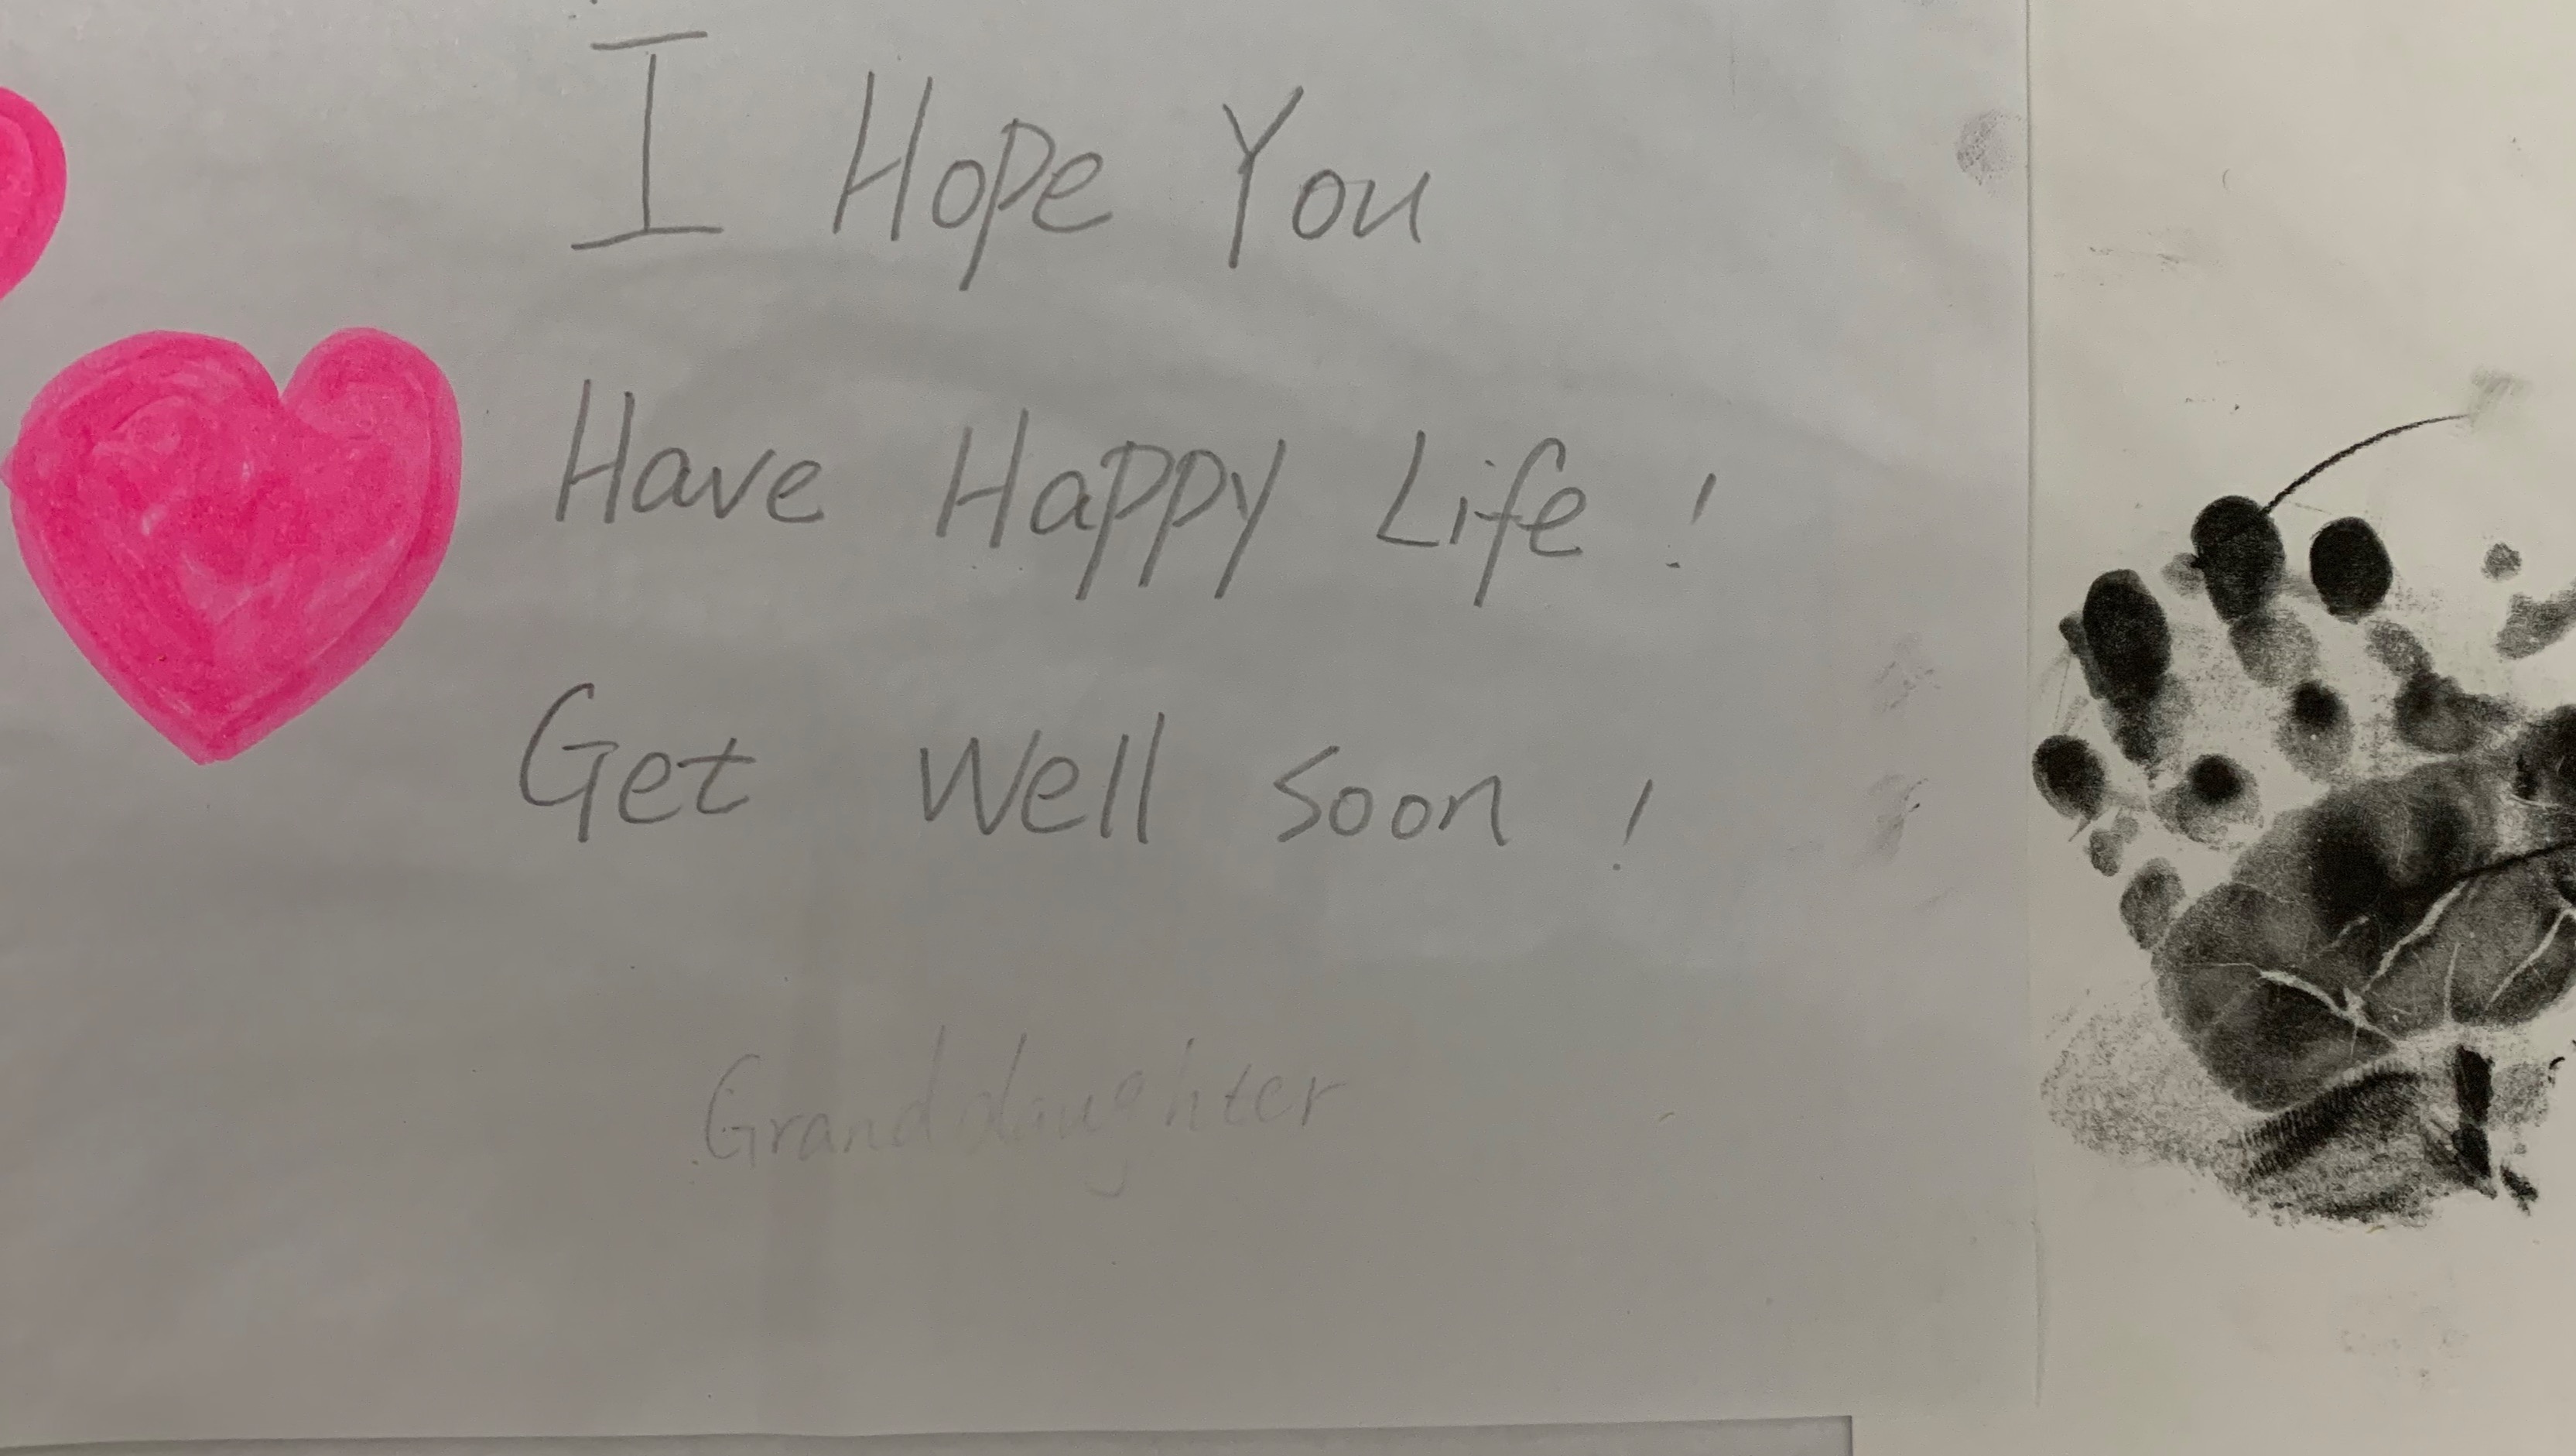 I Hope You
Have Happy Life!
Get Well Soon!
Granddaughter